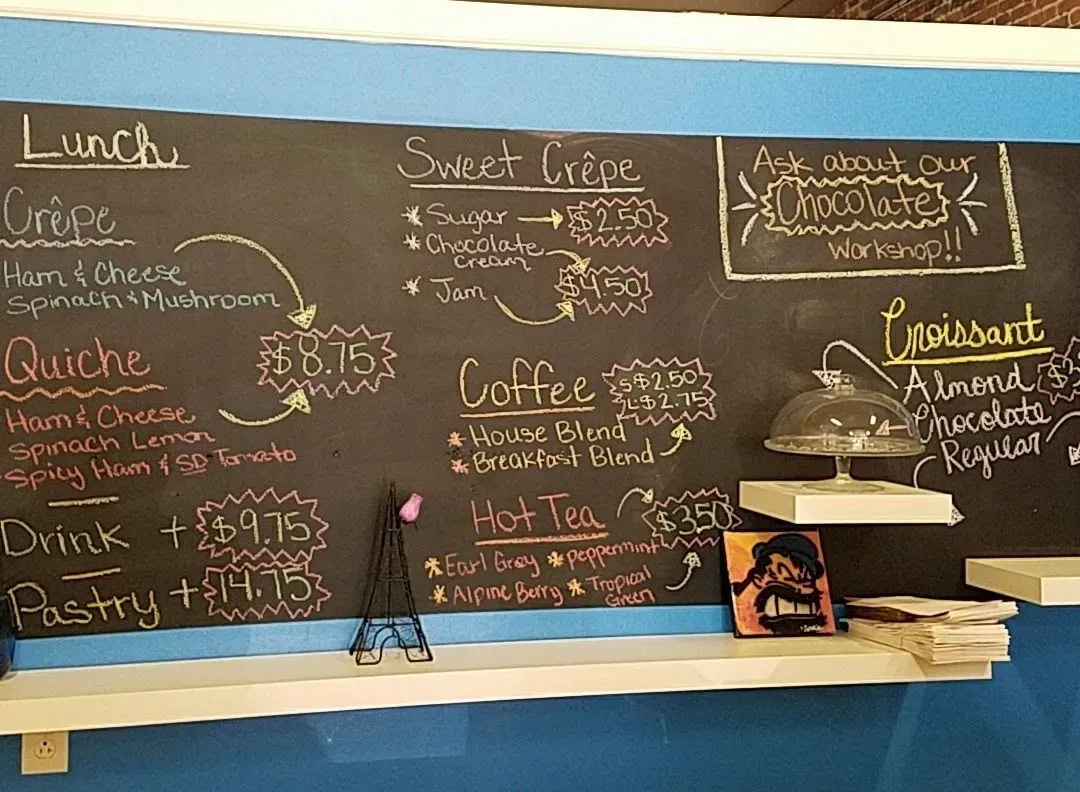 Lunch
Crêpe
Ham & Cheese
Spinach & Mushroom
$8.75
Quiche
Ham & Cheese
Spinach Lemon
Spicy Ham & SD Tomato
Drink + $9.75
Pastry + 14.75
Sweet Crêpe
* Sugar $2.50
* Chocolate
Cream
$4.50
* Jam
Coffee
S $2.50
L $2.75
* House Blend
* Breakfast Blend
Hot Tea $3.50
* Earl Grey * Peppermint
* Alpine Berry * Tropical
Green
Ask about our
Chocolate
Workshop!!
Croissant
Almond
Chocolate
Regular